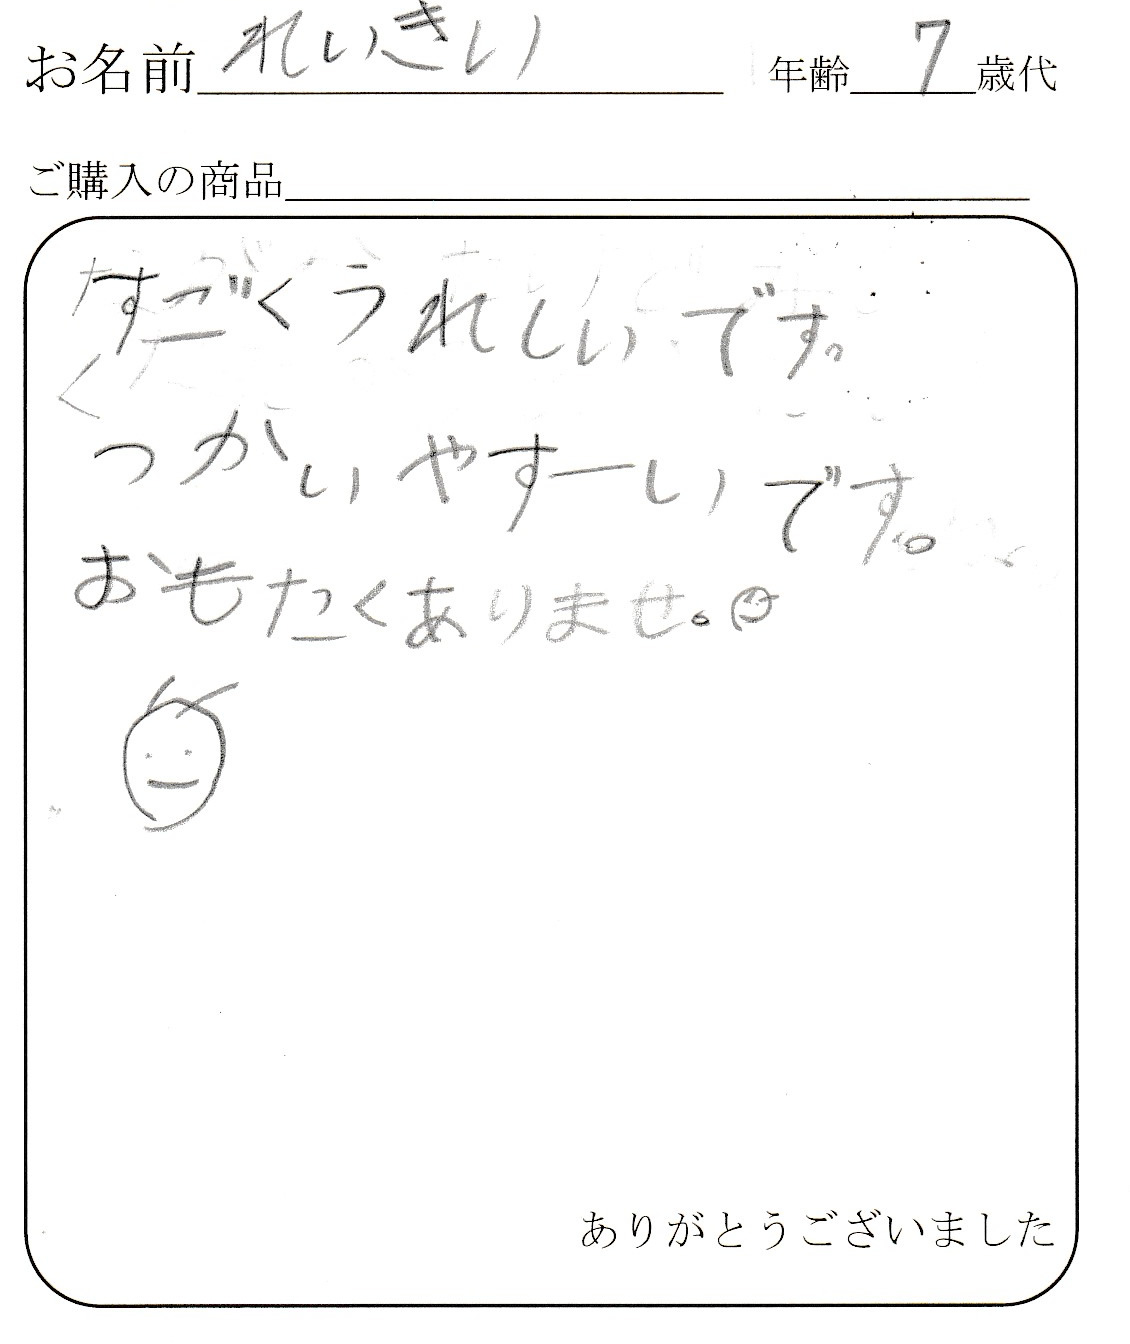 お名前 れいきい 年齢 7 歳代
ご購入の商品
すごくうれしいです。
つかいやすーいです。
おもたくありませ。
ありがとうございました